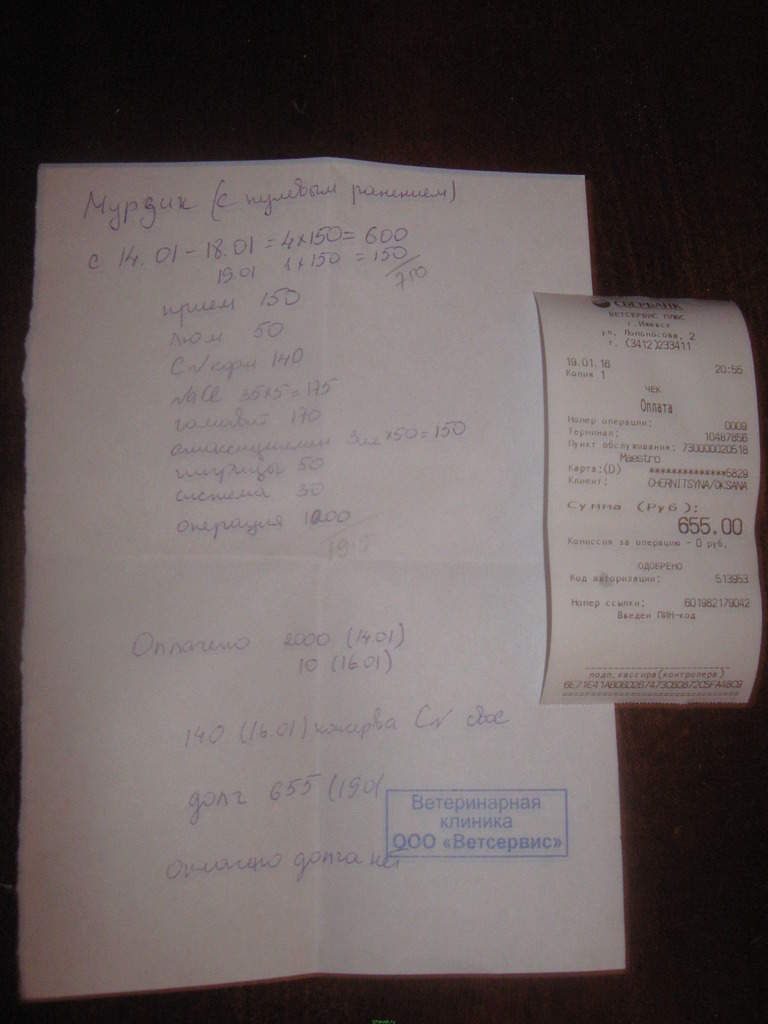 Мурзик (с пулевым ранением)
с 14.01 - 18.01 = 4×150 = 600
19.01 1×150 = 150
750
прием 150
50
С/v корм 140
NaCl 35×5=175
гамавит 170
амоксициллин 3 ×50=150
шприцы 50
система 30
операция 1000
Оплачено 2000 (14.01)
10 (16.01)
140 (16.01) консерва С/v
долг 655 (19.01
оплачено долга нет
Ветеринарная
клиника
ООО «Ветсервис»
СБЕРБАНК
ВЕТСЕРВИС ПЛЮС
г.Ижевск
ул. Ломоносова, 2
т. (3412)233411
19.01.16 20:55
Копия 1
ЧЕК
Оплата
Номер операции: 0009
Терминал: 10487856
Пункт обслуживания: 730000020518
Maestro
Карта:(D) **************5829
Клиент: CHERNITSYNA/OKSANA
Сумма (Руб):
655.00
Комиссия за операцию - 0 руб.
ОДОБРЕНО
Код авторизации: 513953
Номер ссылки: 601982179042
Введен ПИН-код
подп.кассира(контролера)